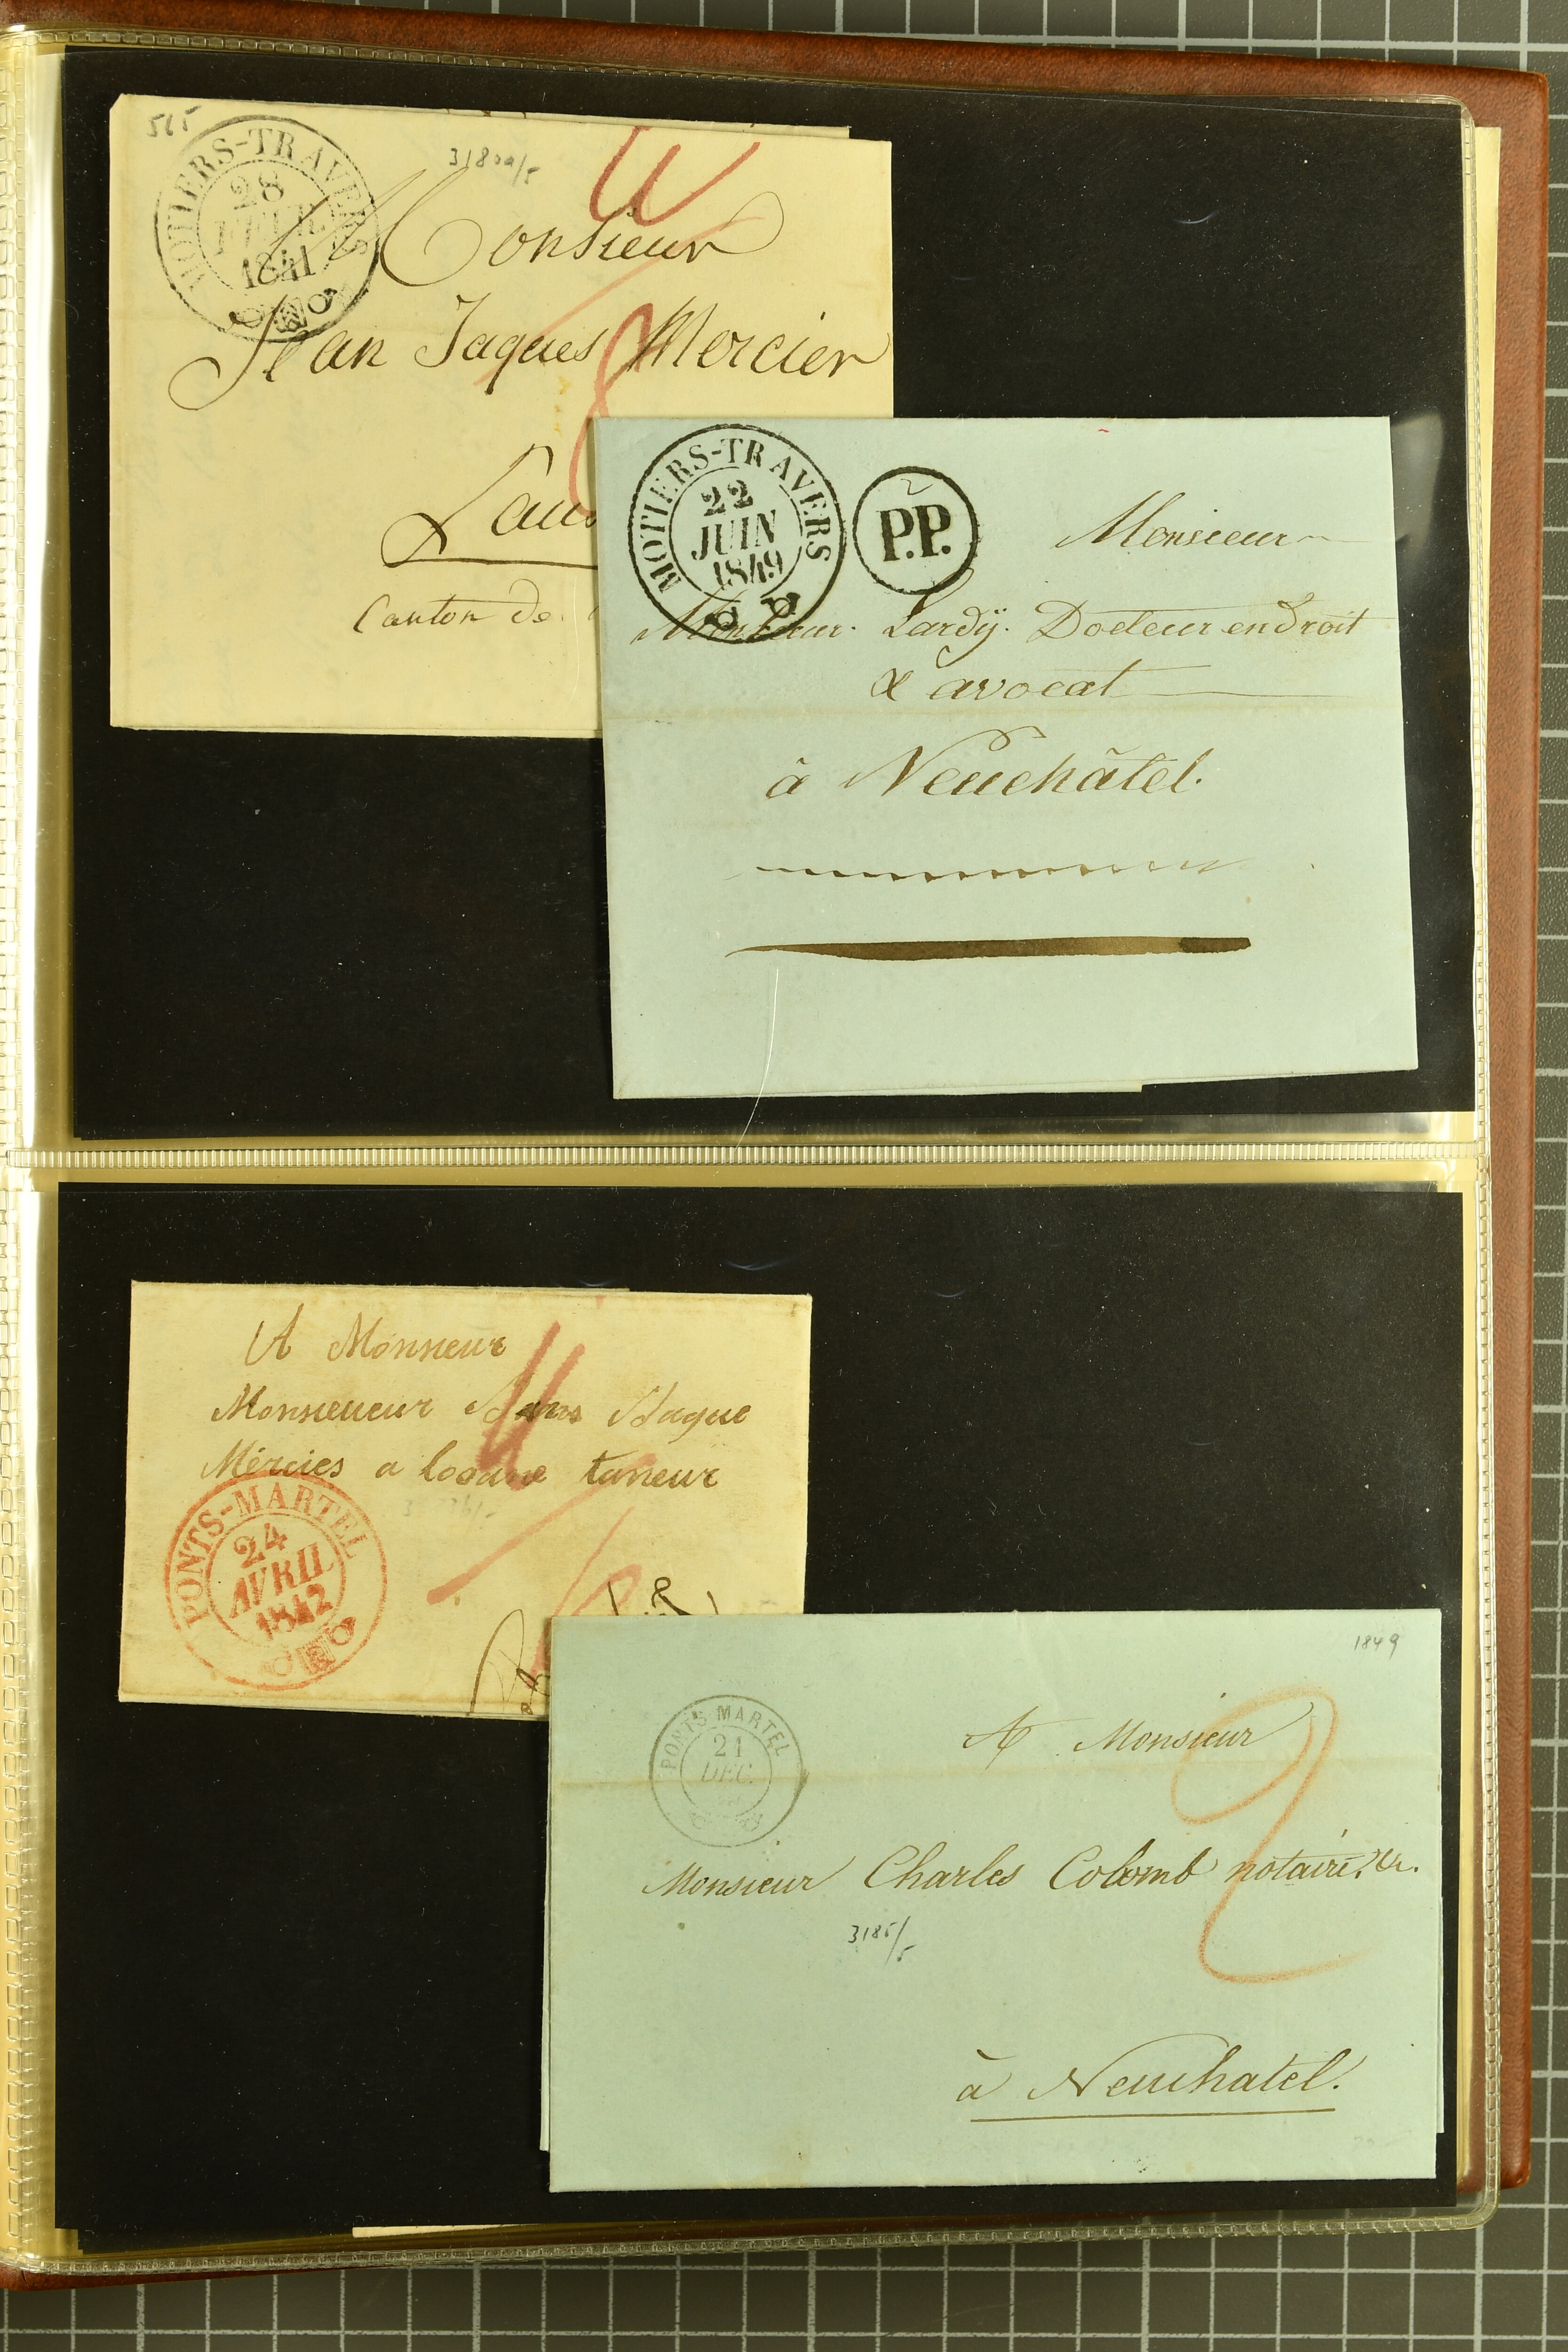 565
3180a/5
MOTIERS-TRAVERS
28
FEVR
1841
Monsieur
Jean Jaques Mercier
Laus
Canton de
MOTIERS-TRAVERS
22
JUIN
1849
P.P.
Monsieur
Monsieur Lardÿ. Docteur en Droit
& avocat
à Neuchâtel.
A Monsieur
Monsieueur Jans Jaque
Mércies a losane taneur
PONTS-MARTEL
24
AVRIL
1842
1849
PONTS MARTEL
21
DEC.
A Monsieur
Monsieur Charles Colomb notaire, &c.
2
3185/5
à Neuchatel.